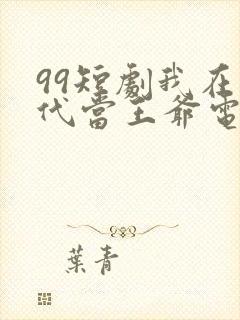 99短劇我在
代當王爺電
葉青